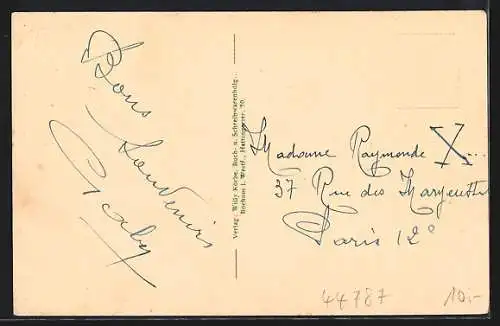 Bons
Souvenirs
Gaby
Verlag: Willy Körbe, Buch- u. Schreibwarenhdlg.,
Bochum i. Westf., Hattingerstr. 20.
Madame Raymonde X...
37 Rue des Marguerittes
Paris 12e
44787
10.-